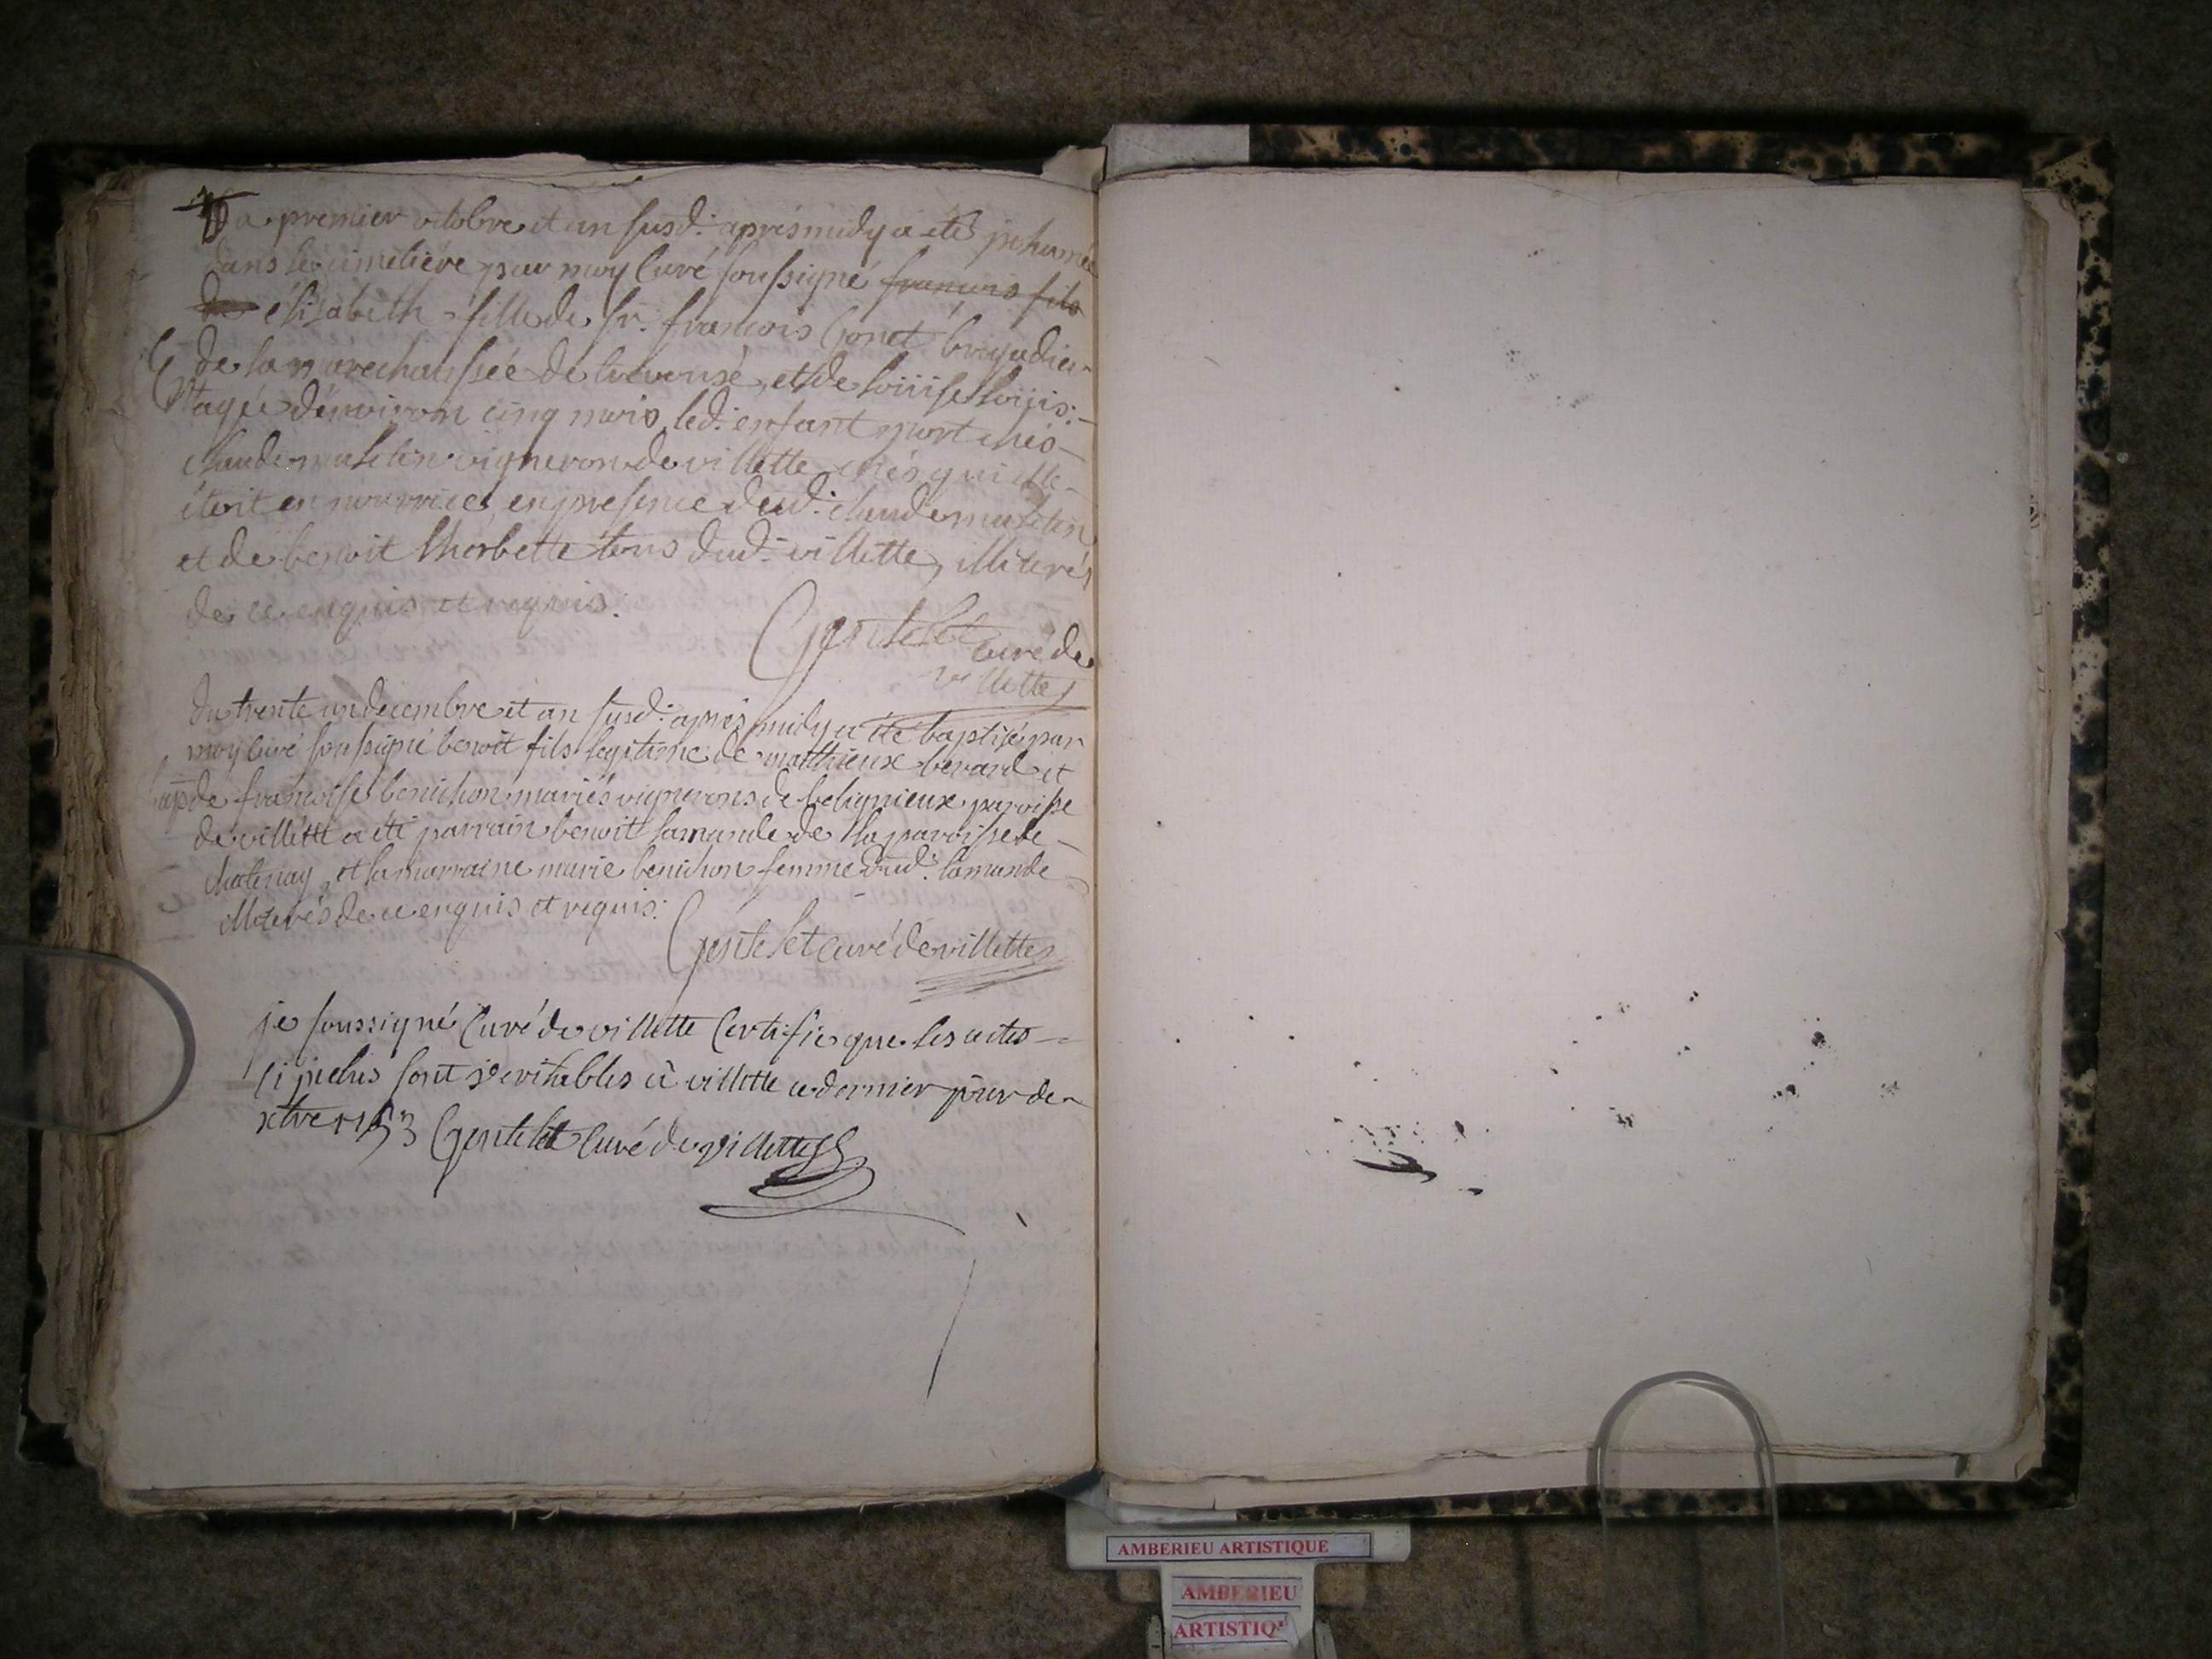 Du premier octobre et an susd: aprésmidy a été jnhumée
dans le cimetiére par moy Curé soussigné françois fils
de élisabeth fille de sr. françois Gonet brigadier
de la maréchaussée de trevouse, et de loüise loüis:
E
M
agée d'environ cinq mois, led: enfant mort chés
claude vigneron de villette chés qui elle
étoit en nourrice, en presence dud: claude
et de benoit lherbette tous dud: villette, illiterés
de ce enquis et requis:
Gentelet curé de
villette
du trente un decembre et an susd: aprés midy a été baptisé par
moy curé soussigné benoit fils legitime de matthieux berard et
bap
de françoise benichon mariés vignerons de belignieux paroisse
de villette a été parrain benoit lamande de la paroisse de
chatenay, et la marraine marie benichon femme dud: lamande
illiterés de ce enquis et requis:
Gentelet curé de villette
je soussigné Curé de villette Certifie que les actes
ci jnclus sont veritables à villette ce dernier jour de
xbre 1753 Gentelet Curé de villette
AMBERIEU ARTISTIQUE
AMBERIEU
ARTISTIQ